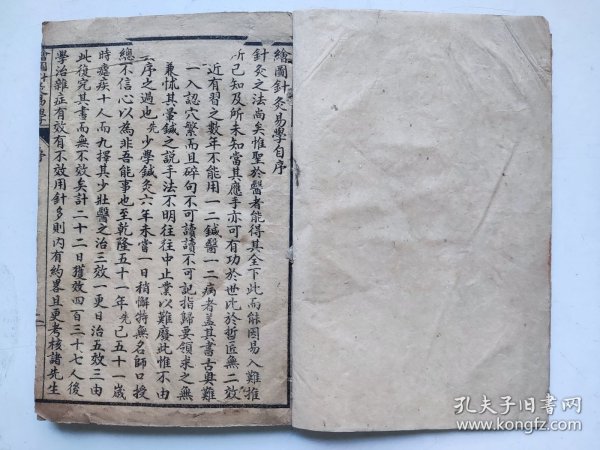 繪圖針灸易學自序
針灸之法尚矣惟聖於醫者能得其全下此而能因易入難推
所已知及所未知當其應手亦可有功於世比於哲匠無二效
近有習之數年不能用一二鍼醫一二病者蓋其書古奧難
一入認穴繁而且碎句不可讀讀不可記指歸要領求之無
兼怵其暈鍼之說手法不明往往中止業以難廢此惟不由
序之過也先少學鍼灸六年未嘗一日稍懈特無名師口授
總不信心以為非吾能事也至乾隆五十一年先已五十一歲
時瘧疾十人而九擇其少壯醫之治三效一更日治五效三由
此復究其書而無不效矣計二十二日獲效四百三十七人後
學治雜症有效有不效用針多則內有約畧且更考核諸先生
繪圖針灸易學
序
二
孔夫子旧书网
www.kongfz.com